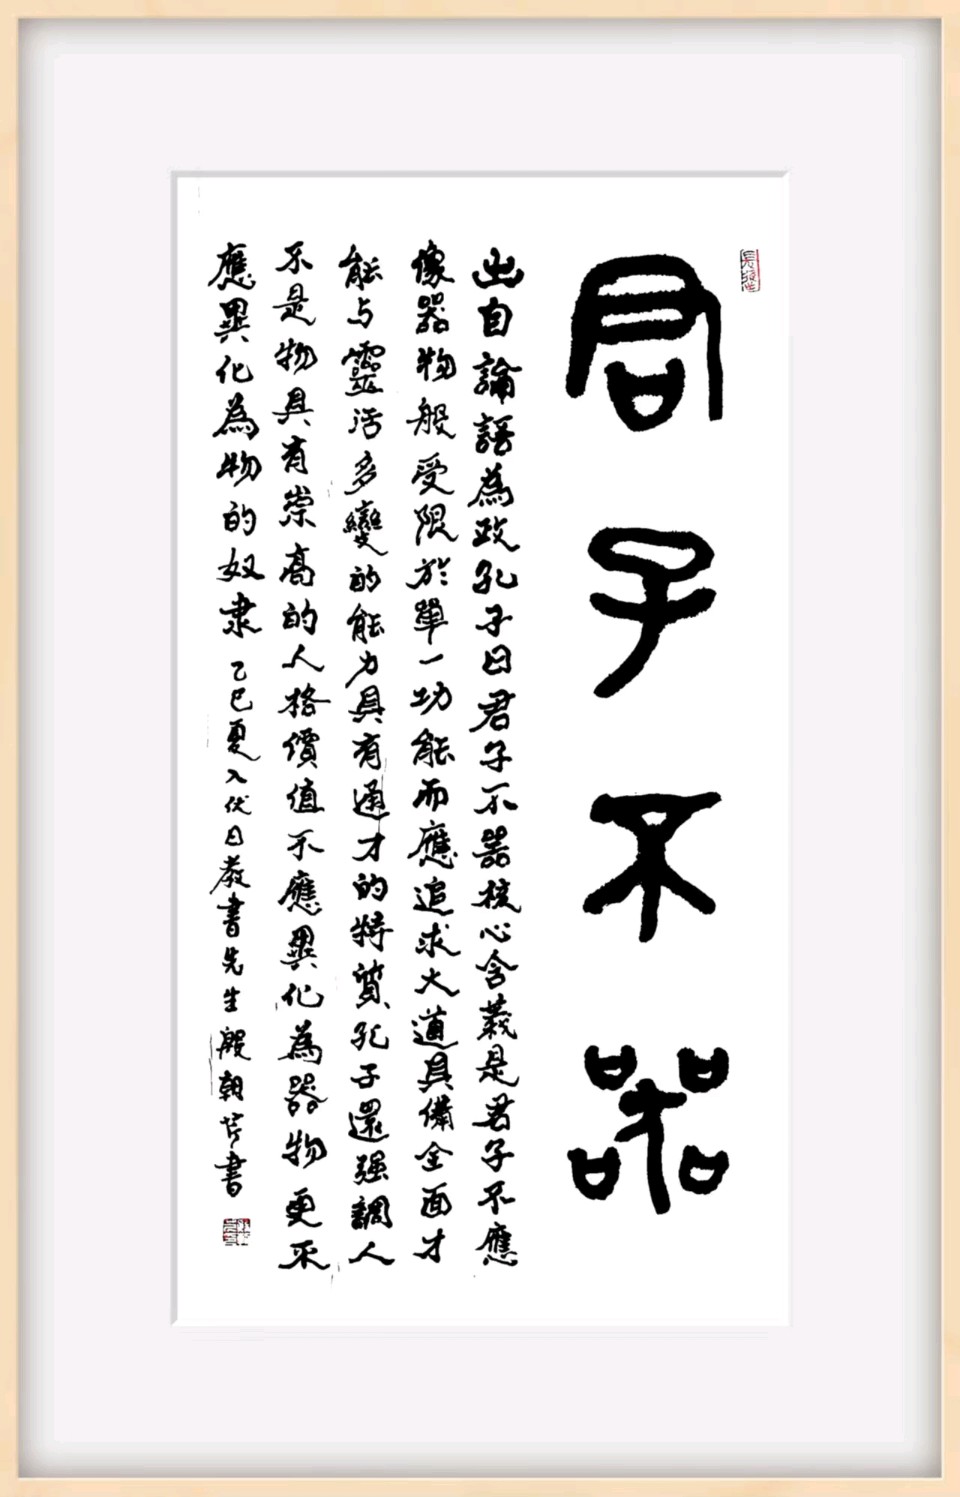 君子不器
出自論語為政孔子曰君子不器核心含義是君子不應
像器物般受限於單一功能而應追求大道具備全面才
能与靈活多變的能力具有通才的特質孔子還强調人
不是物具有崇高的人格價值不應異化為器物更不
應異化為物的奴隶 乙巳夏入伏日教書先生殷朝書